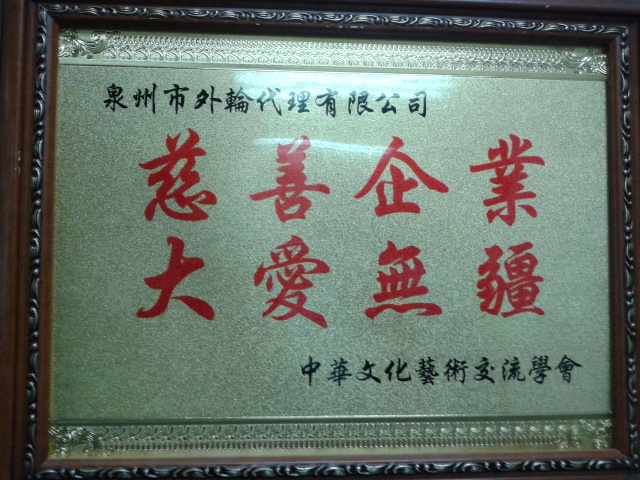 泉州市外輪代理有限公司
慈善企業
大愛無疆
中華文化藝術交流學會